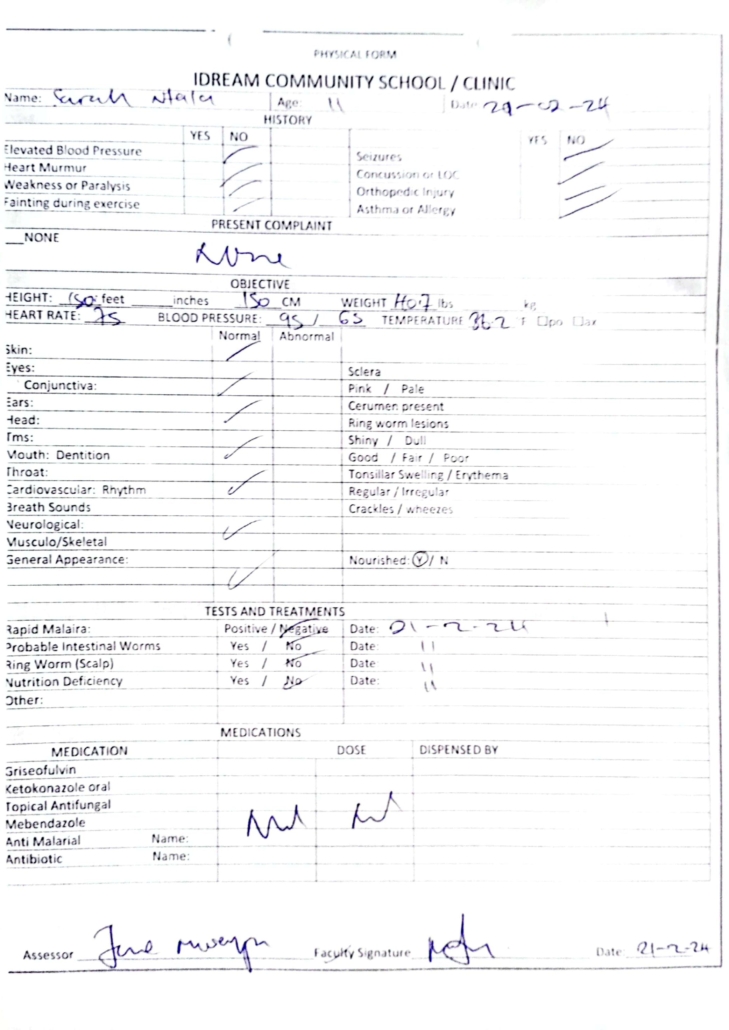 PHYSICAL FORM
IDREAM COMMUNITY SCHOOL / CLINIC
Name: Sarah Age: 11 Date:
HISTORY
YES NO YES NO
Elevated Blood Pressure Seizures
Heart Murmur Concussion or LOC
Weakness or Paralysis Orthopedic Injury
Fainting during exercise Asthma or Allergy
PRESENT COMPLAINT
___NONE
None
OBJECTIVE
HEIGHT: 150 feet ______ inches 150 CM WEIGHT 40.7 lbs kg
HEART RATE: 75 BLOOD PRESSURE: 95 / 65 TEMPERATURE 36.2 F □po □ax
Normal Abnormal
Skin:
Eyes: Sclera
Conjunctiva: Pink / Pale
Ears: Cerumen present
Head: Ring worm lesions
Tms: Shiny / Dull
Mouth: Dentition Good / Fair / Poor
Throat: Tonsillar Swelling / Erythema
Cardiovascular: Rhythm Regular / Irregular
Breath Sounds Crackles / wheezes
Neurological:
Musculo/Skeletal
General Appearance: Nourished: Y / N
TESTS AND TREATMENTS
Rapid Malaira: Positive / Negative Date:
Probable Intestinal Worms Yes / No Date: 11
Ring Worm (Scalp) Yes / No Date 11
Nutrition Deficiency Yes / No Date: 11
Other:
MEDICATIONS
MEDICATION DOSE DISPENSED BY
Griseofulvin
Ketokonazole oral
Topical Antifungal
Mebendazole
Anti Malarial Name:
Antibiotic Name:
Assessor Faculty Signature Date 21-2-24